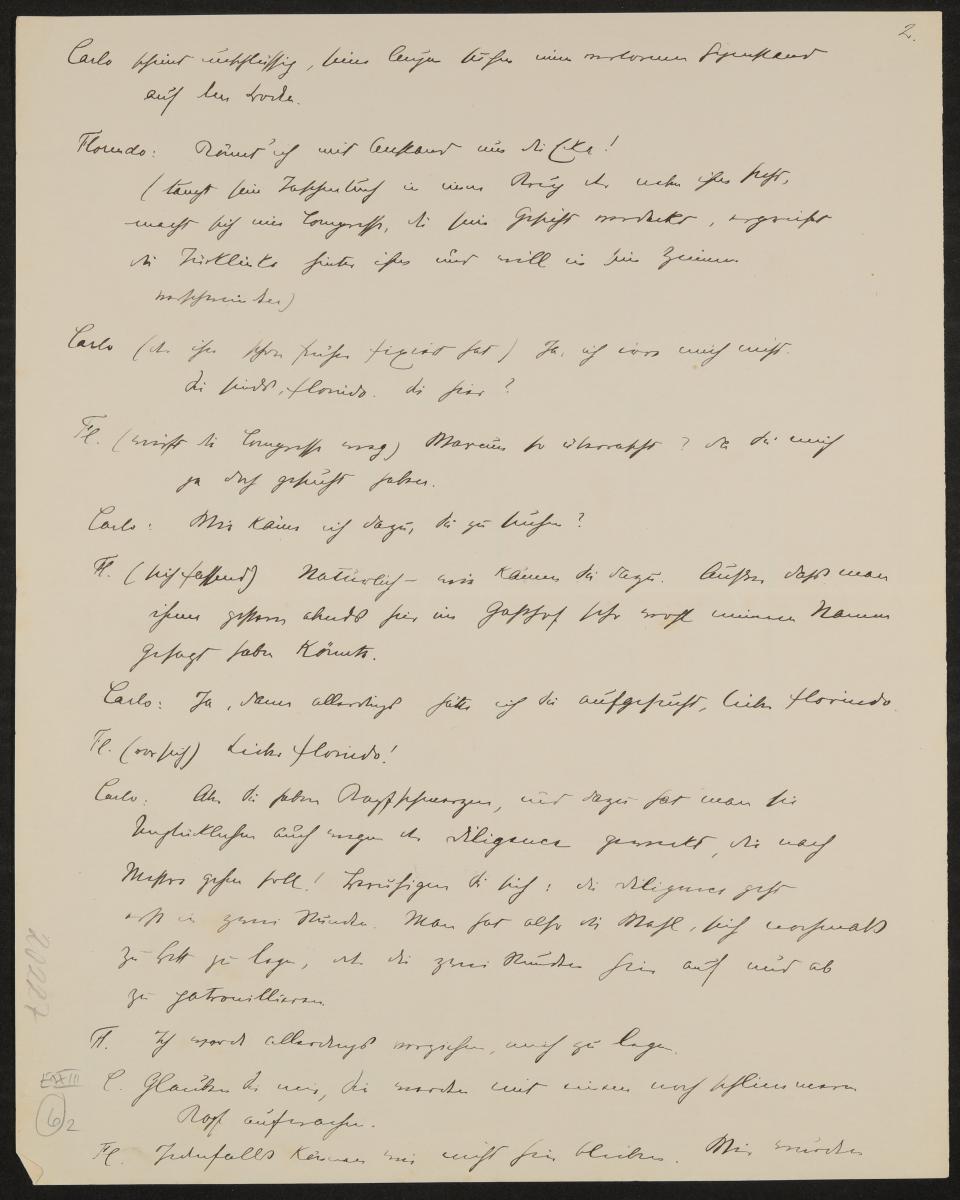 2.
Carlo scheint unschlüssig, seine Augen suchen einen verlorenen Gegenstand
auf dem Boden.
Florindo: Könnt' ich mit Anstand um die Ecke!
(taucht sein Taschentuch in einen Krug der neben ihm steht,
macht sich eine Compresse, die sein Gesicht verdeckt, ergreift
die Türklinke hinter ihm und will in sein Zimmer
verschwinden)
Carlo (der ihn schon früher fixiert hat) Ja, ich irre mich nicht.
Sie sind's, Florindo. Sie hier?
Fl. (wirft die Compresse weg) Warum so überrascht? Da Sie mich
ja doch gesucht haben.
Carlo: Wie käme ich dazu, Sie zu suchen?
Fl. (sich fassend) Natürlich – wie kämen Sie dazu. Außer dass man
ihnen gestern abends hier im Gasthof sehr wohl meinen Namen
gesagt haben könnte.
Carlo: Ja, dann allerdings hätte ich Sie aufgesucht, lieber Florindo.
Fl. (vor sich) Lieber Florindo!
Carlo: Aber Sie haben Kopfschmerzen, und dazu hat man Sie
Unglücklichen auch wegen der Diligence geweckt, die nach
Mestre gehen soll! Beruhigen Sie sich: die Diligence geht
erst in zwei Stunden. Man hat also die Wahl, sich nochmals
zu Bett zu legen, oder die zwei Stunden hier auf und ab
zu patrouillieren
Fl. Ich werde allerdings vorziehen, mich zu legen.
C. Glauben Sie mir, Sie werden mit einem noch schlimmeren
Kopf aufwachen.
Fl. Jedenfalls können wir nicht hier bleiben. Wir würden
20227
E IV A III
6 2